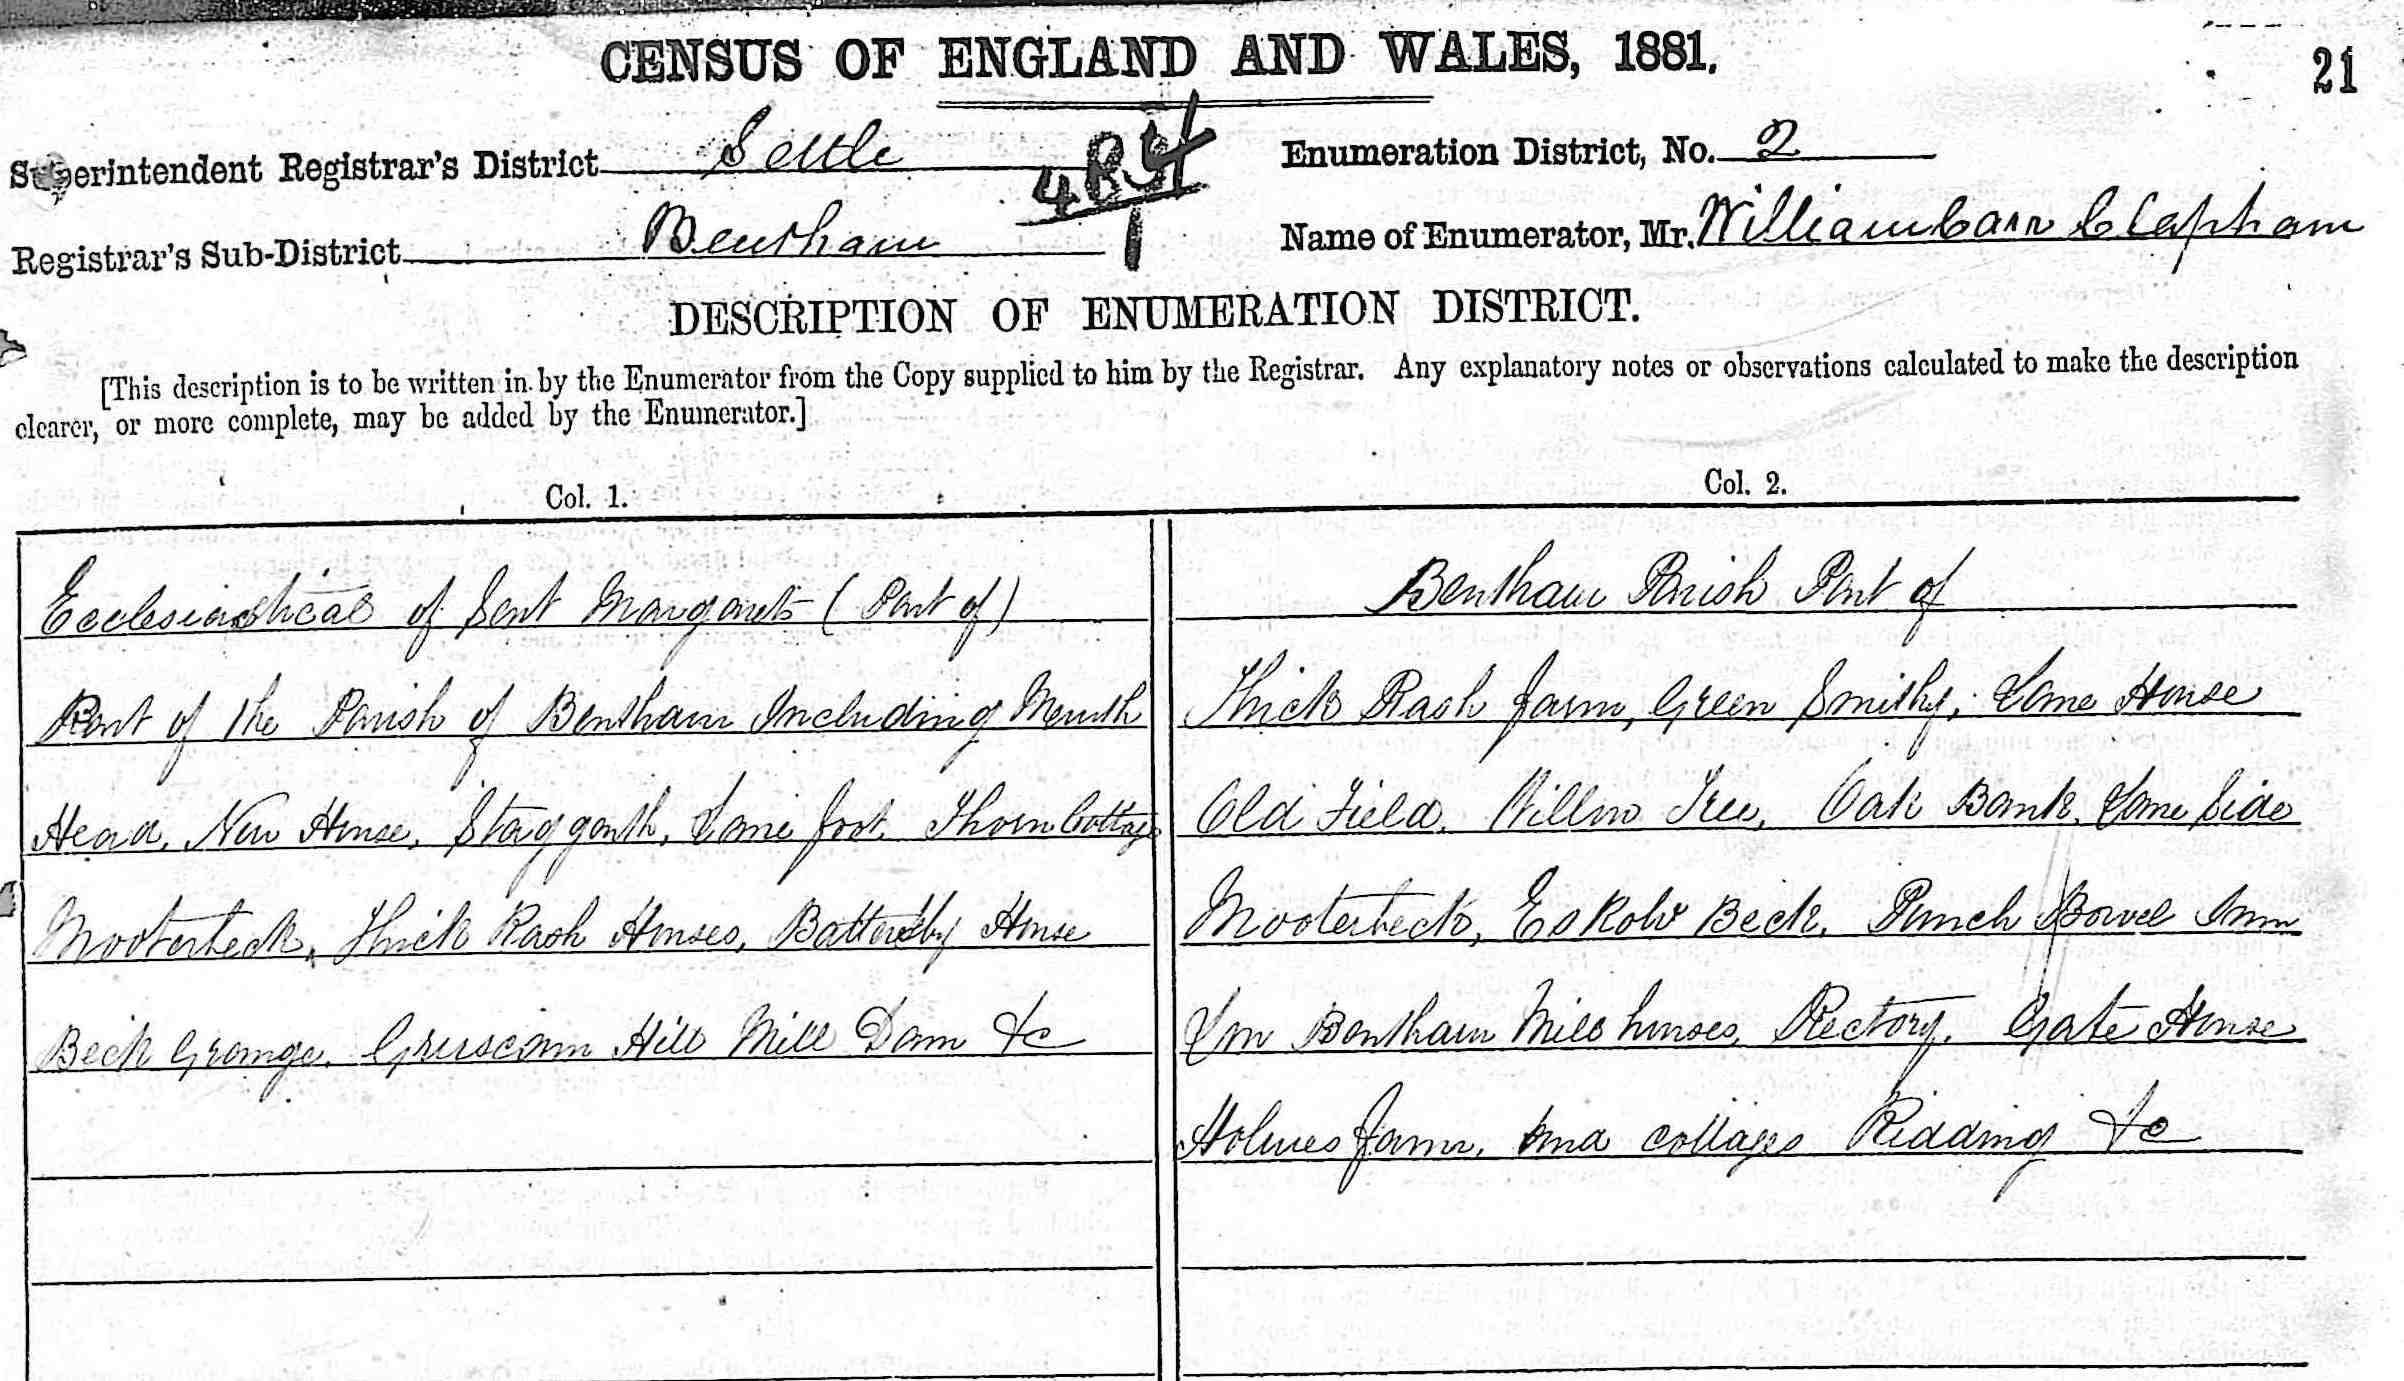 CENSUS OF ENGLAND AND WALES, 1881.
21
Superintendent Registrar's District Settle
484
1
Enumeration District, No. 2
Registrar's Sub-District Bentham
Name of Enumerator, Mr. William Carr Clapham
DESCRIPTION OF ENUMERATION DISTRICT.
[This description is to be written in by the Enumerator from the Copy supplied to him by the Registrar. Any explanatory notes or observations calculated to make the description
clearer, or more complete, may be added by the Enumerator.]
Col. 1.
Ecclesiastical of Sent Margarets (Part of)
Part of the Parish of Bentham Including Mewith
Head, New House, Staggarth, Lane foot, Thorn Cottage
Mooterbeck, Thick Rash Houses, Battersby House
Beck Grange, Hill Mill Dam &c
Col. 2.
Bentham Parish Part of
Thick Rash farm, Green Smithy, Lane House
Old Field, Willow Tree, Oak Bank, Lane Side
Mooterbeck, Eskow Beck, Punch Bowel Inn
Low Bentham Mill houses, Rectory, Gate House
Holmes farm, and cottages Ridding &c